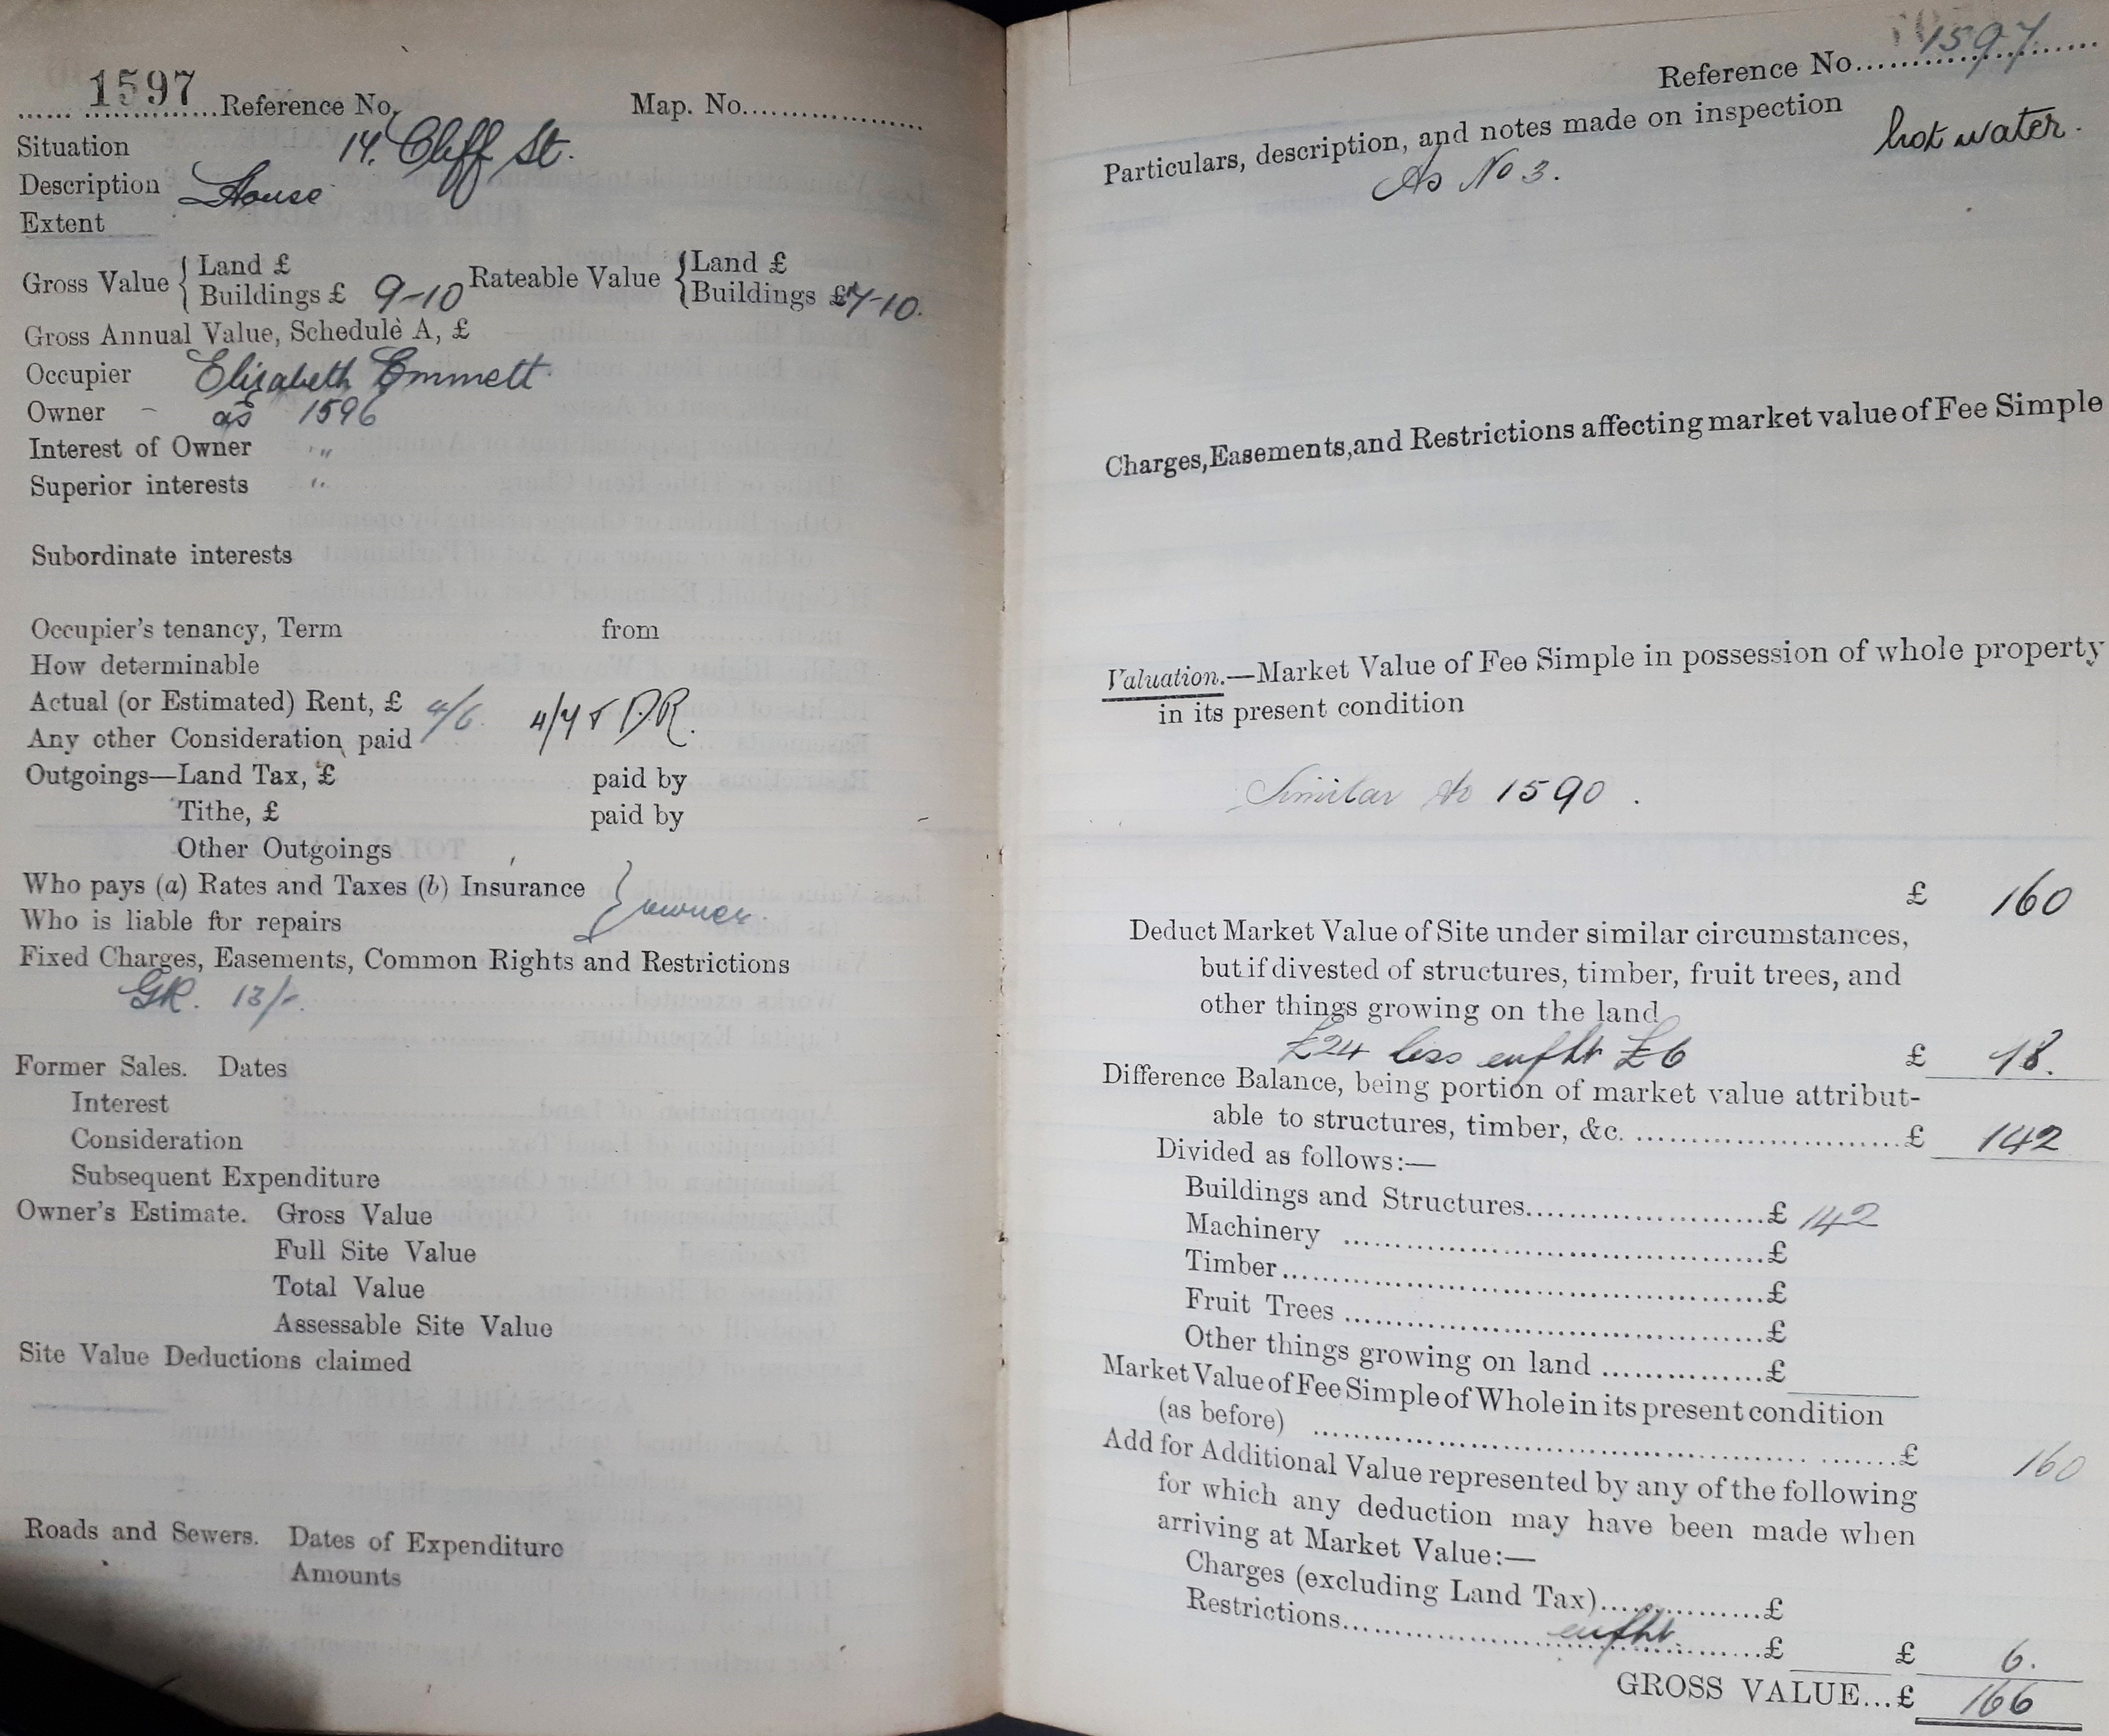 1597 Reference No. Map. No.
Situation 14. Cliff St.
Description House
Extent
Gross Value { Land £ Rateable Value { Land £
Buildings £ 9-10 Buildings £7-10.
Gross Annual Value, Schedule A, £
Occupier Elizabeth Emmett
Owner - as 1596
Interest of Owner "
Superior interests "
Subordinate interests
Occupier's tenancy, Term from
How determinable
Actual (or Estimated) Rent, £ 4/6. 4/7 & D.R.
Any other Consideration paid
Outgoings—Land Tax, £ paid by
Tithe, £ paid by
Other Outgoings
Who pays (a) Rates and Taxes (b) Insurance } owner.
Who is liable for repairs
Fixed Charges, Easements, Common Rights and Restrictions
GR. 13/-.
Former Sales. Dates
Interest
Consideration
Subsequent Expenditure
Owner's Estimate. Gross Value
Full Site Value
Total Value
Assessable Site Value
Site Value Deductions claimed
Roads and Sewers. Dates of Expenditure
Amounts
Reference No. 1597
Particulars, description, and notes made on inspection hot water.
As No 3.
Charges, Easements, and Restrictions affecting market value of Fee Simple
Valuation.—Market Value of Fee Simple in possession of whole property
in its present condition
Similar to 1590.
£ 160
Deduct Market Value of Site under similar circumstances,
but if divested of structures, timber, fruit trees, and
other things growing on the land
£24 less enfht £6 £ 18.
Difference Balance, being portion of market value attribut-
able to structures, timber, &c. £ 142
Divided as follows:—
Buildings and Structures £ 142
Machinery £
Timber £
Fruit Trees £
Other things growing on land £
Market Value of Fee Simple of Whole in its present condition
(as before) £ 160
Add for Additional Value represented by any of the following
for which any deduction may have been made when
arriving at Market Value:—
Charges (excluding Land Tax) £
Restrictions enfht. £ £ 6.
GROSS VALUE...£ 166